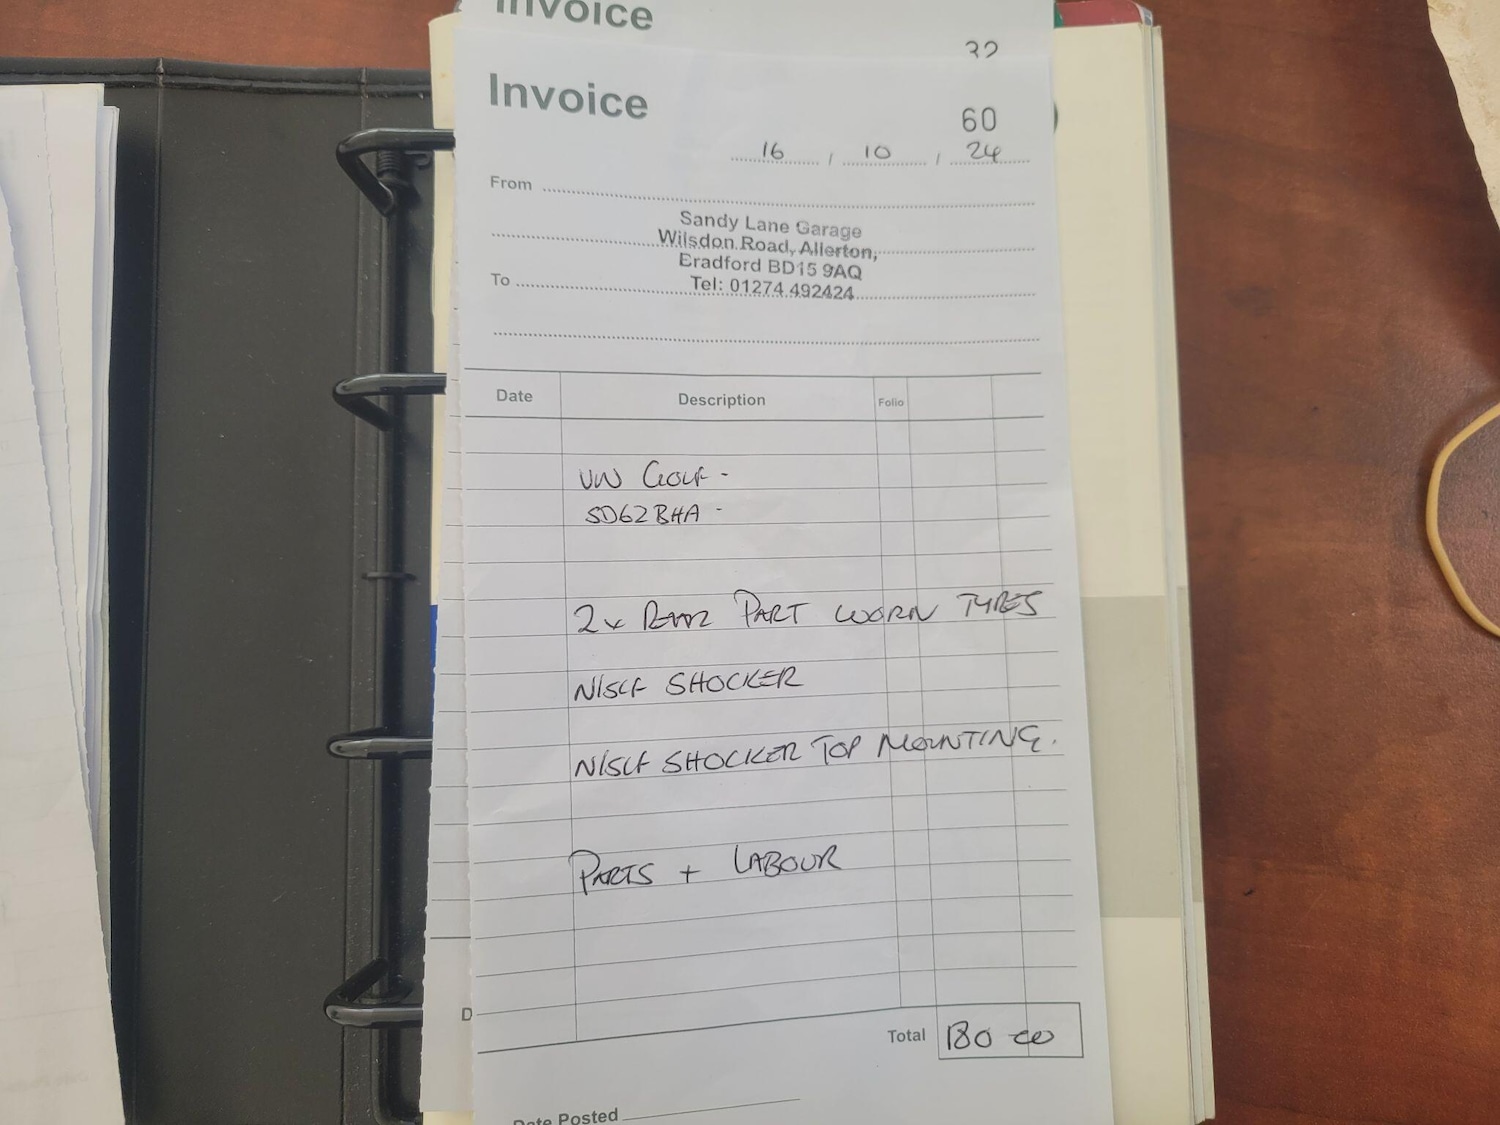 Invoice
32
Invoice
60
16 / 10 / 24
From
Sandy Lane Garage
Wilsdon Road, Allerton,
Eradford BD15 9AQ
To
Tel: 01274 492424
Date Description Folio
VW GOLF -
SD62BHA -
2x REAR PART WORN TYRES
N/S/F SHOCKER
N/S/F SHOCKER TOP MOUNTING.
PARTS + LABOUR
D
Total 180 00
Date Posted